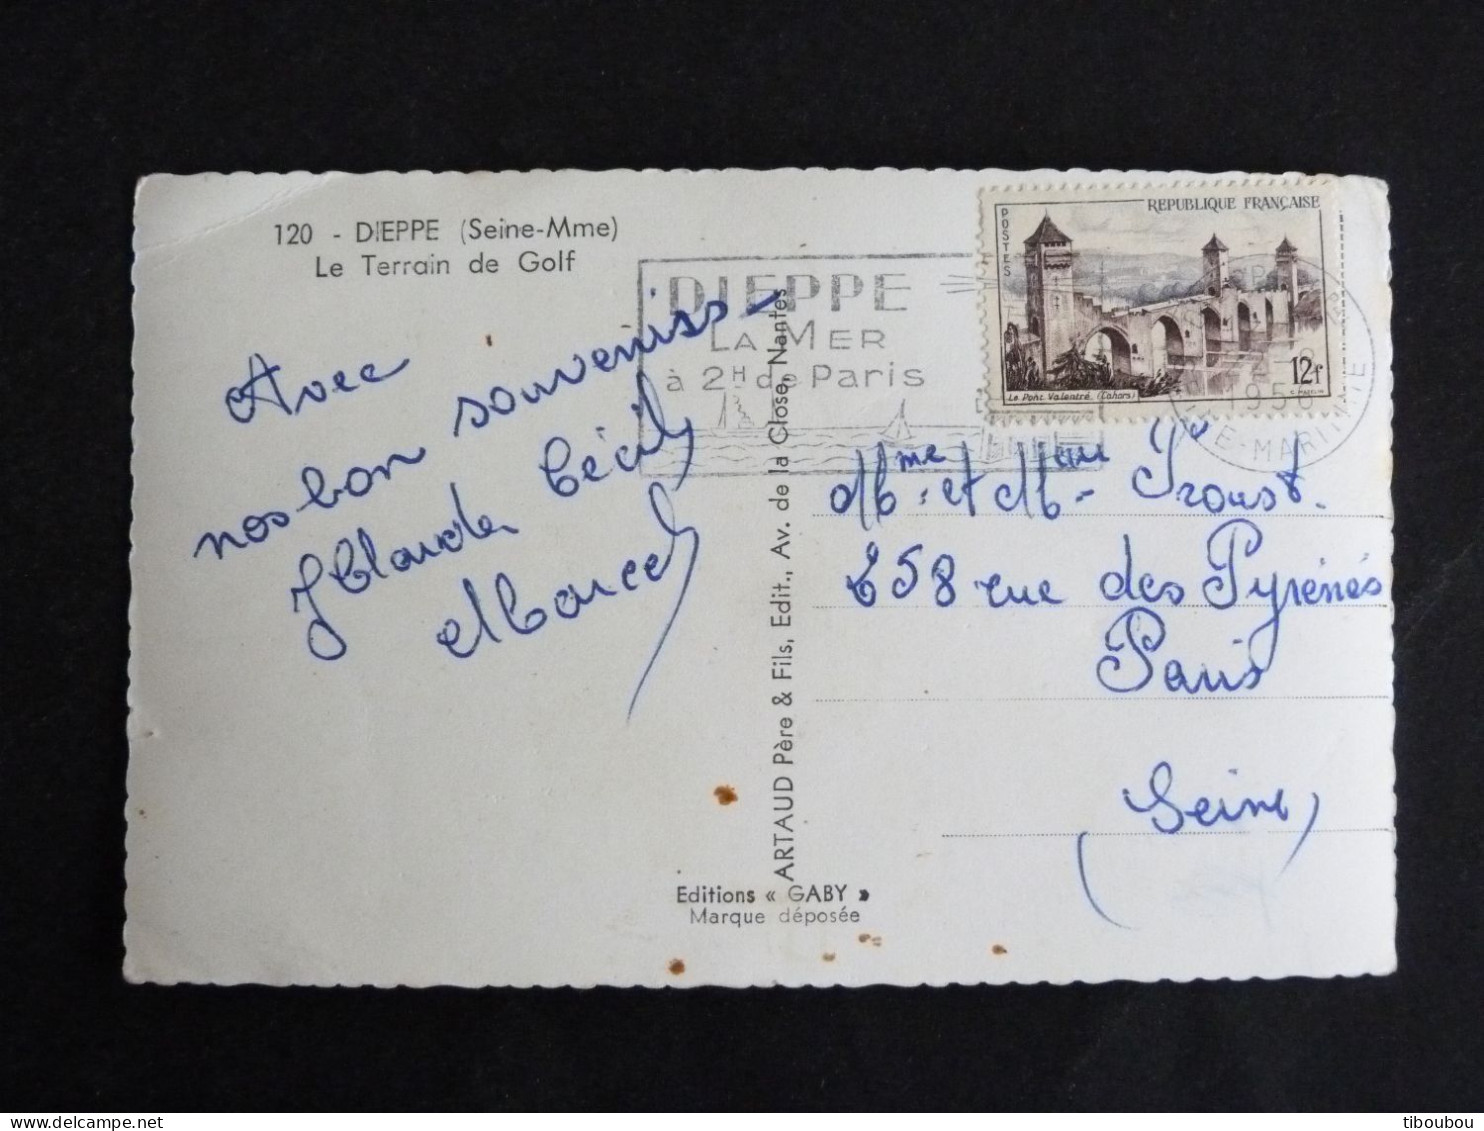 120 - DIEPPE (Seine-Mme)
Le Terrain de Golf
Avec
nos bon souvenirs -
JClaude Cécile
Marcel
DIEPPE
LA MER
à 2H de Paris
POSTES
REPUBLIQUE FRANÇAISE
12f
Le Pont Valentré. (Cahors)
1956
E-MARITIME
Mme et M - Proust.
258 rue des Pyrénés
Paris
(Seine)
ARTAUD Père & Fils, Edit., Av. de la Close, Nantes
Editions « GABY »
Marque déposée
tiboubou